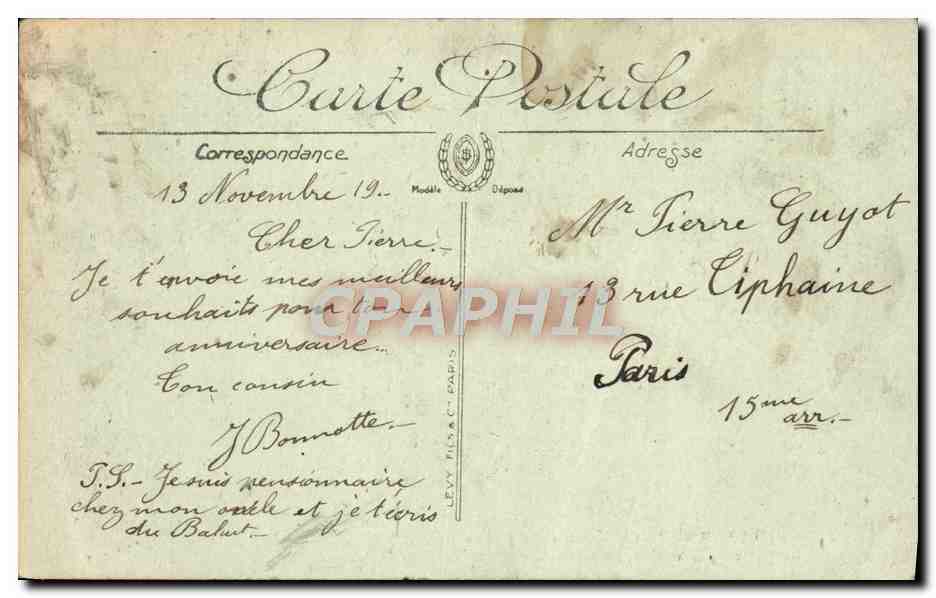 Carte Postale
Correspondance
Adresse
Modèle Déposé
13 Novembre 19.-
Cher Pierre.-
Je t'envoie mes meilleurs
souhaits pour ton
anniversaire.-
Ton cousin
J Bonnotte.-
P.S.- Je suis pensionnaire
chez mon oncle et je t'écris
du Bahut.-
LEVY FILS & Cie PARIS
Mr Pierre Guyot
13 rue Tiphaine
Paris
15me
arr.-
CPAPHIL